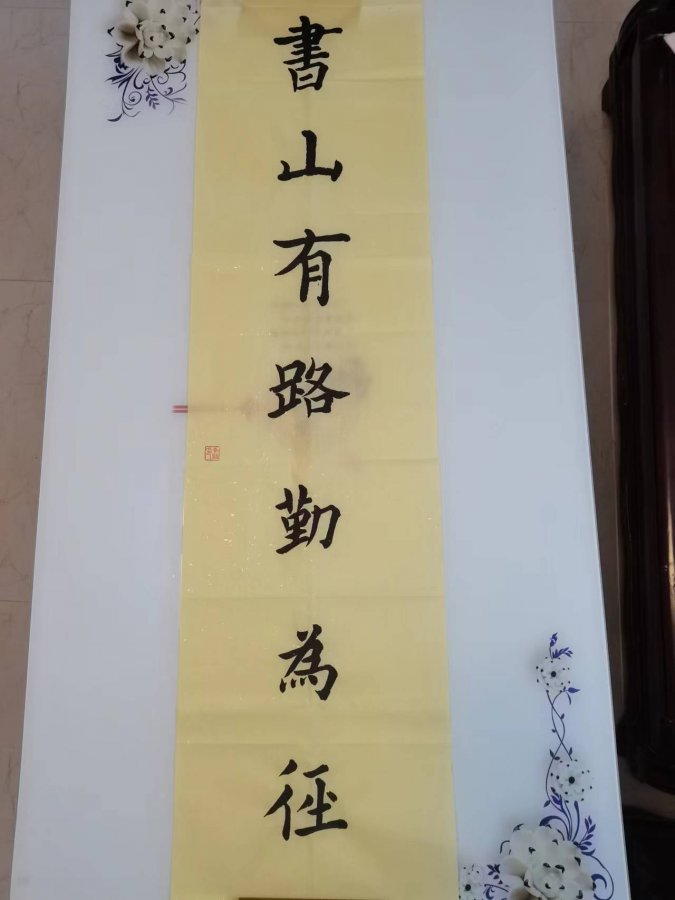 書山有路勤為径